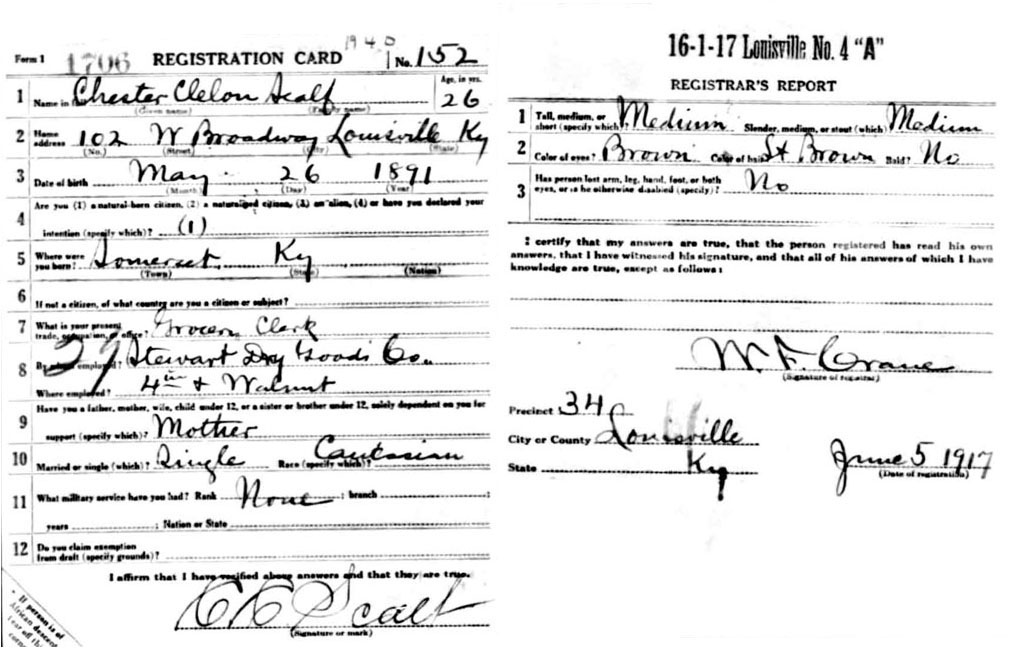 1940
Form 1 1706 REGISTRATION CARD No. 152
1 Name in full Chester Clelon Scalf Age, in yrs. 26
(Given name) (Family name)
2 Home address 102 W Broadway Louisville Ky
(No.) (Street) (City) (State)
3 Date of birth May 26 1891
(Month) (Day) (Year)
4 Are you (1) a natural-born citizen, (2) a naturalized citizen, (3) an alien, (4) or have you declared your
intention (specify which)? (1)
5 Where were you born? Somerset Ky
(Town) (State) (Nation)
6 If not a citizen, of what country are you a citizen or subject?
7 What is your present trade, occupation, or office? Grocery Clerk
29
8 By whom employed? Stewart Dry Goods Co.
Where employed? 4th + Walnut
9 Have you a father, mother, wife, child under 12, or a sister or brother under 12, solely dependent on you for
support (specify which)? Mother
10 Married or single (which)? Single Race (specify which)? Caucasian
11 What military service have you had? Rank None ; branch ;
years ; Nation or State
12 Do you claim exemption
from draft (specify grounds)?
I affirm that I have verified above answers and that they are true.
C C Scalf
(Signature or mark)
If person is of
African descent
corner
16-1-17 Louisville No. 4 "A"
REGISTRAR'S REPORT
1 Tall, medium, or short (specify which)? Medium Slender, medium, or stout (which) Medium
2 Color of eyes? Brown Color of hair Brown Bald? No
3 Has person lost arm, leg, hand, foot, or both
eyes, or is he otherwise disabled (specify)? No
I certify that my answers are true, that the person registered has read his own
answers, that I have witnessed his signature, and that all of his answers of which I have
knowledge are true, except as follows:
W. F. Crane
(Signature of registrar)
Precinct 34
City or County Louisville
State Ky
June 5 1917
(Date of registration)